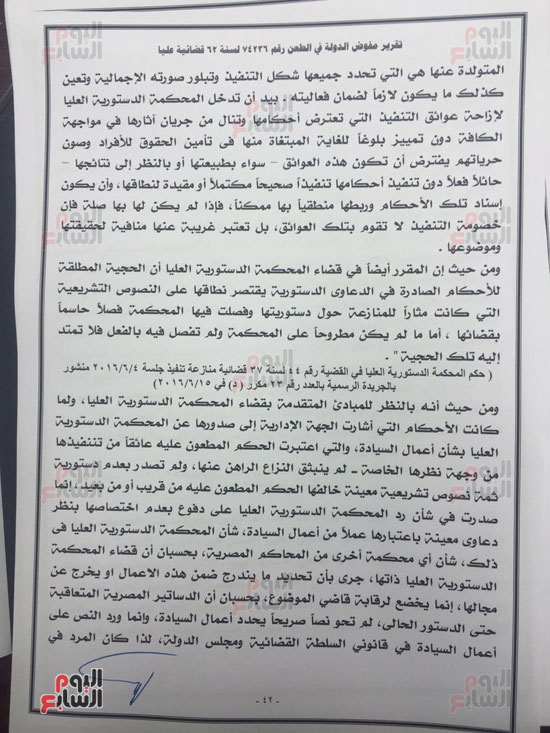 اليوم السابع
تقرير مفوض الدولة في الطعن رقم ٧٤٢٣٦ لسنة ٦٢ قضائية عليا
المتولدة عنها هي التي تحدد جميعها شكل التنفيذ وتبلور صورته الإجمالية وتعين
كذلك ما يكون لازماً لضمان فعاليته، بيد أن تدخل المحكمة الدستورية العليا
لإزاحة عوائق التنفيذ التي تعترض أحكامها وتنال من جريان آثارها في مواجهة
الكافة دون تمييز بلوغاً للغاية المبتغاة منها في تأمين الحقوق للأفراد وصون
حرياتهم يفترض أن تكون هذه العوائق – سواء بطبيعتها أو بالنظر إلى نتائجها –
حائلاً فعلاً دون تنفيذ أحكامها تنفيذاً صحيحاً مكتملاً أو مقيدة لنطاقها، وأن يكون
إسناد تلك الأحكام وربطها منطقياً بها ممكناً، فإذا لم يكن لها بها صلة فإن
خصومة التنفيذ لا تقوم بتلك العوائق، بل تعتبر غريبة عنها منافية لحقيقتها
وموضوعها .
ومن حيث إن المقرر أيضاً في قضاء المحكمة الدستورية العليا أن الحجية المطلقة
للأحكام الصادرة في الدعاوى الدستورية يقتصر نطاقها على النصوص التشريعية
التي كانت مثاراً للمنازعة حول دستوريتها وفصلت فيها المحكمة فصلاً حاسماً
بقضائها ، أما ما لم يكن مطروحاً على المحكمة ولم تفصل فيه بالفعل فلا تمتد
إليه تلك الحجية " .
( حكم المحكمة الدستورية العليا في القضية رقم ٤٤ لسنة ٣٧ قضائية منازعة تنفيذ جلسة ٢٠١٦/٦/٤ منشور
بالجريدة الرسمية بالعدد رقم ٢٣ مكرر ( د) في ٢٠١٦/٦/١٥ )
ومن حيث أنه بالنظر للمبادئ المتقدمة بقضاء المحكمة الدستورية العليا، ولما
كانت الأحكام التي أشارت الجهة الإدارية إلى صدورها عن المحكمة الدستورية
العليا بشأن أعمال السيادة، والتي اعتبرت الحكم المطعون عليه عائقاً من تننفيذها
من وجهة نظرها الخاصة - لم ينبثق النزاع الراهن عنها، ولم تصدر بعدم دستورية
ثمة نصوص تشريعية معينة خالفها الحكم المطعون عليه من قريب أو من بعيد، إنما
صدرت في شأن رد المحكمة الدستورية العليا على دفوع بعدم اختصاصها بنظر
دعاوى معينة باعتبارها عملاً من أعمال السيادة، شأن المحكمة الدستورية العليا فى
ذلك، شأن أي محكمة أخرى من المحاكم المصرية، بحسبان أن قضاء المحكمة
الدستورية العليا ذاتها، جرى بأن تحديد ما يندرج ضمن هذه الاعمال او يخرج عن
مجالها، إنما يخضع لرقابة قاضي الموضوع، بحسبان أن الدساتير المصرية المتعاقبة
حتى الدستور الحالى، لم تحو نصاً صريحاً يحدد أعمال السيادة، وإنما ورد النص على
أعمال السيادة في قانوني السلطة القضائية ومجلس الدولة، لذا كان المرد في
- ٤٢ -
اليوم السابع
اليوم السابع